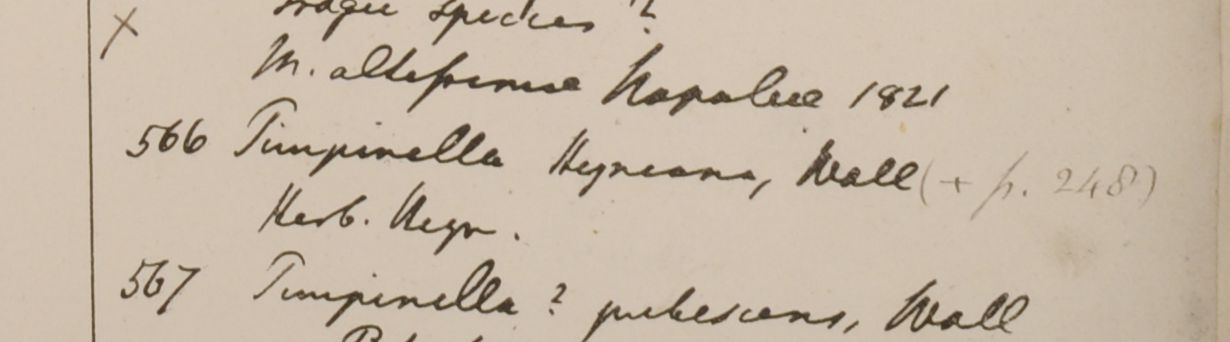 Tragii species ?
X
M. altissimae Napaliae 1821
566 Timpinella Heyneana, Wall (+ p. 248)
Herb. Heyn.
567 Timpinella ? pubescens, Wall